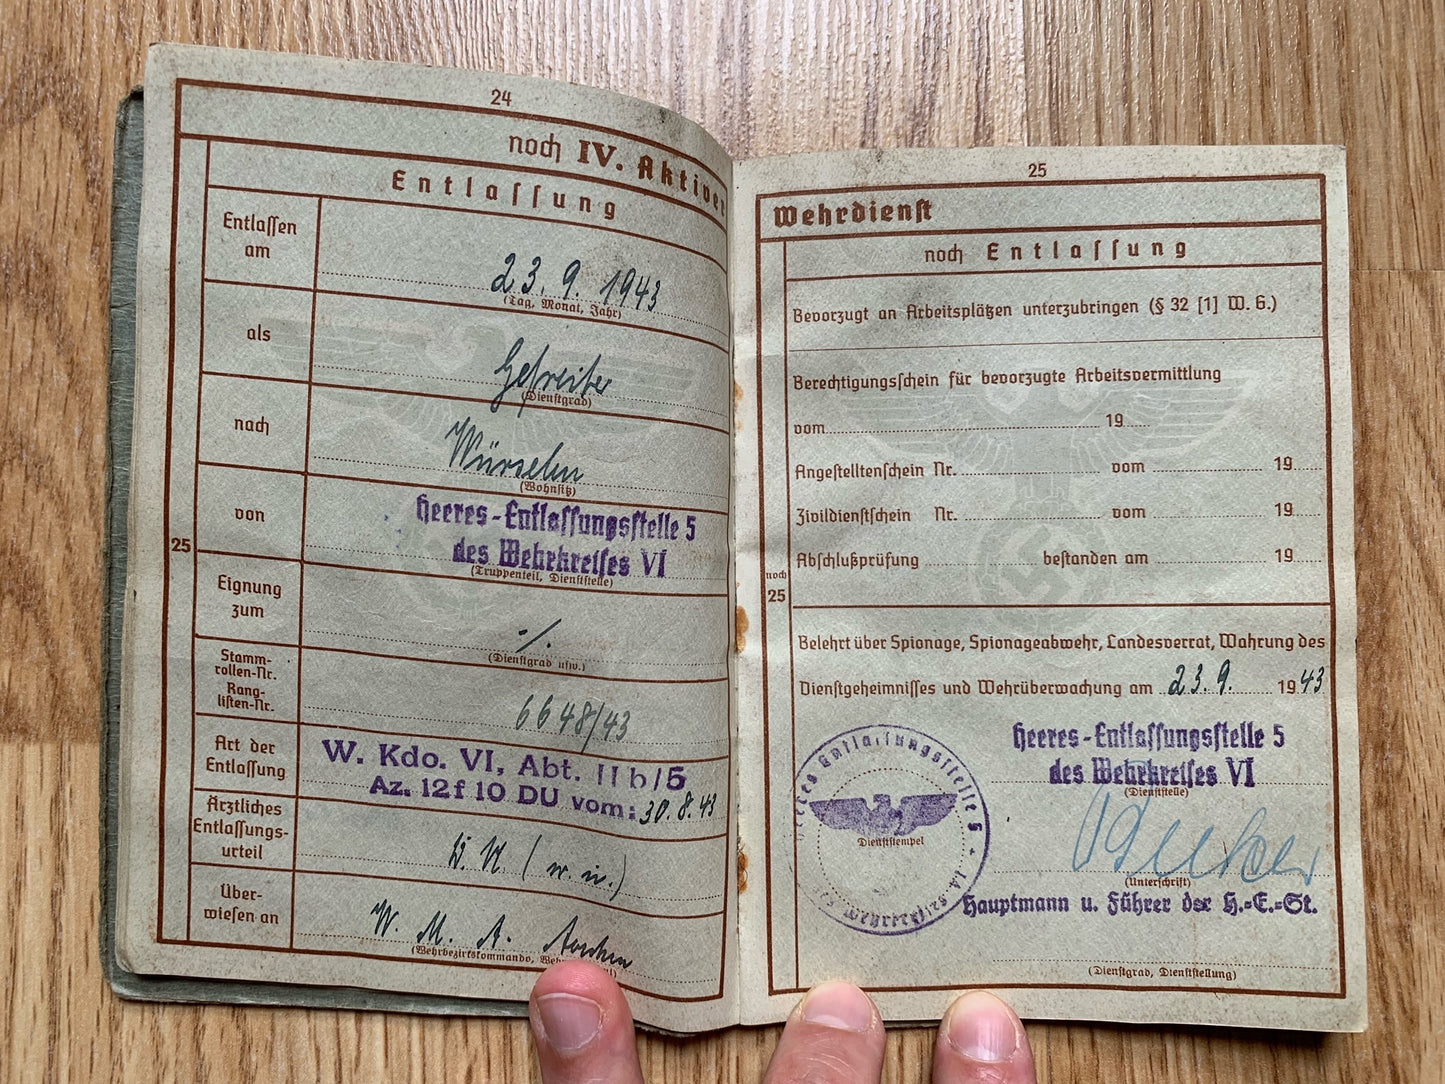 24
noch IV. Aktiver
Entlassung
Entlassen am
23. 9. 1943
(Tag, Monat, Jahr)
als
Gefreiter
(Dienstgrad)
nach
Würseln
(Wohnsitz)
von
Heeres-Entlassungsstelle 5
des Wehrkreises VI
(Truppenteil, Dienststelle)
25
Eignung zum
-/.
(Dienstgrad usw.)
Stamm-
rollen-Nr.
Rang-
listen-Nr.
6648/43
Art der
Entlassung
W. Kdo. VI, Abt. II b/5
Az. 12 f 10 DU vom: 30.8.43
Ärztliches
Entlassungs-
urteil
(w. u.)
Über-
wiesen an
W. M. A. Aachen
(Wehrbezirkskommando,
25
Wehrdienst
noch Entlassung
Bevorzugt an Arbeitsplätzen unterzubringen (§ 32 [1] W. G.)
Berechtigungsschein für bevorzugte Arbeitsvermittlung
vom 19
Angestelltenschein Nr. vom 19
Zivildienstschein Nr. vom 19
Abschlußprüfung bestanden am 19
noch
25
Belehrt über Spionage, Spionageabwehr, Landesverrat, Wahrung des
Dienstgeheimnisses und Wehrüberwachung am 23. 9. 1943
Heeres-Entlassungsstelle 5
des Wehrkreises VI
(Dienststelle)
Heeres Entlassungsstelle 5 * I.A. des Wehrkreises
Dienststempel
(Unterschrift)
Hauptmann u. Führer der H.-E.-St.
(Dienstgrad, Dienststellung)